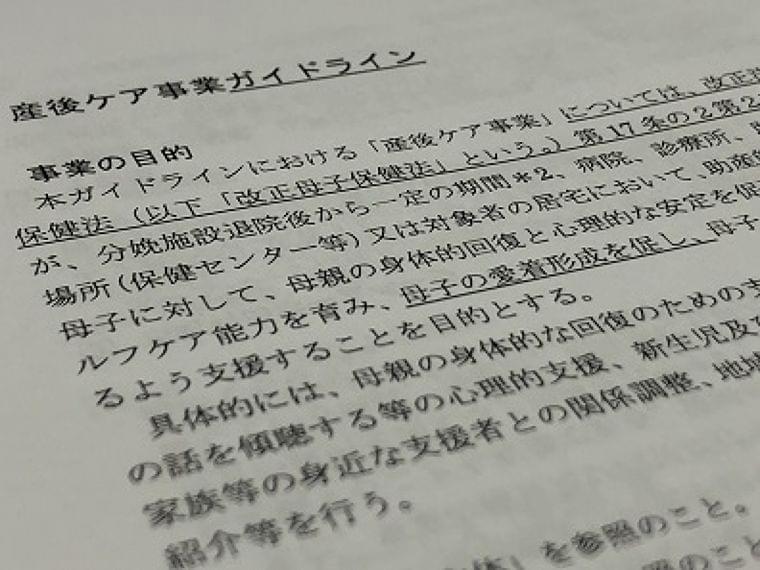 産後ケア事業ガイドライン
事業の目的
本ガイドラインにおける「産後ケア事業」については、改正
保健法（以下「改正母子保健法」という。）第17条の2第2
が、分娩施設退院後から一定の期間※2、病院、診療所、
場所（保健センター等）又は対象者の居宅において、助産
母子に対して、母親の身体的回復と心理的な安定を促
ルフケア能力を育み、母子の愛着形成を促し、母子
るよう支援することを目的とする。
具体的には、母親の身体的な回復のための支
の話を傾聴する等の心理的支援、新生児及び
家族等の身近な支援者との関係調整、地域
紹介等を行う。
」を参照のこと。
照のこと